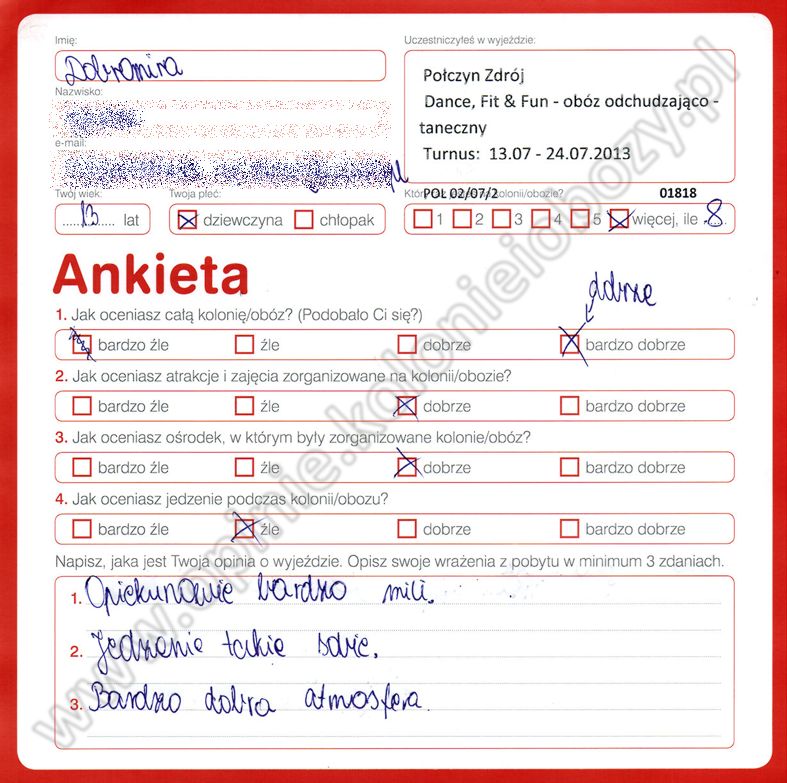 Imię:
Dobromira
Uczestniczyłeś w wyjeździe:
Połczyn Zdrój
Dance, Fit & Fun - obóz odchudzająco -
taneczny
Turnus: 13.07 - 24.07.2013
Nazwisko:
e-mail:
POL 02/07/2 01818
Twój wiek:
13 lat
Twoja płeć:
dziewczyna chłopak
1 2 3 4 5 więcej, ile 8
Ankieta
dobrze
1. Jak oceniasz całą kolonię/obóz? (Podobało Ci się?)
bardzo źle źle dobrze bardzo dobrze
2. Jak oceniasz atrakcje i zajęcia zorganizowane na kolonii/obozie?
bardzo źle źle dobrze bardzo dobrze
3. Jak oceniasz ośrodek, w którym były zorganizowane kolonie/obóz?
bardzo źle źle dobrze bardzo dobrze
4. Jak oceniasz jedzenie podczas kolonii/obozu?
bardzo źle źle dobrze bardzo dobrze
Napisz, jaka jest Twoja opinia o wyjeździe. Opisz swoje wrażenia z pobytu w minimum 3 zdaniach.
1. Opiekunowie bardzo mili.
2. Jedzenie takie
3. Bardzo dobra atmosfera.
www.opinie.kolonieiobozy.pl